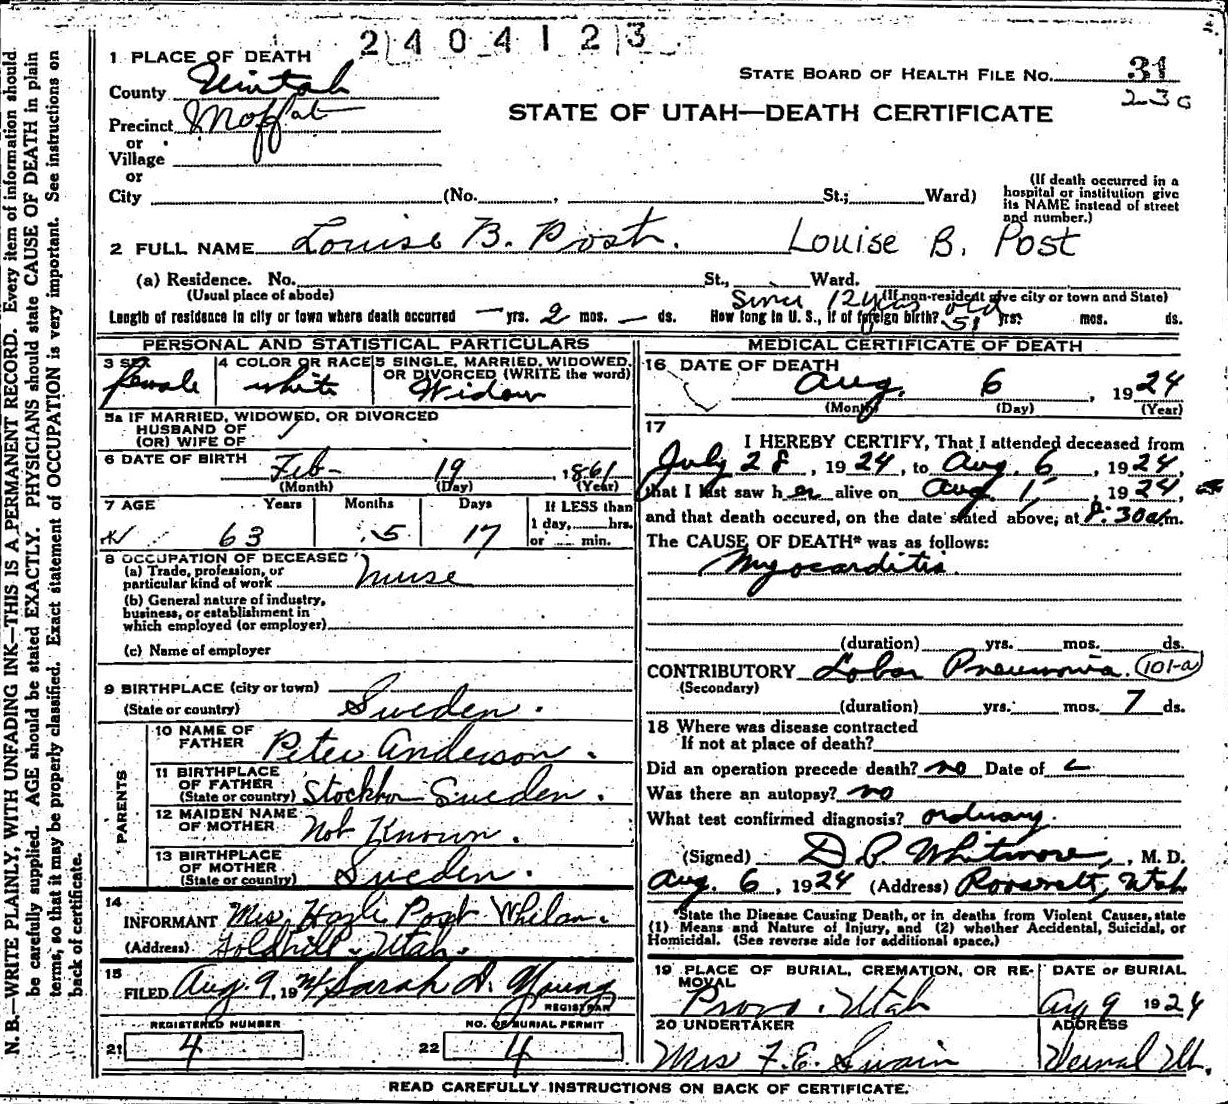 2404123
1 PLACE OF DEATH
STATE BOARD OF HEALTH FILE No. 31
230
County Uintah
STATE OF UTAH—DEATH CERTIFICATE
Precinct Moffat
or
Village
or
City (No. , St.; Ward)
(If death occurred in a
hospital or institution give
its NAME instead of street
and number.)
2 FULL NAME Louise B. Post. Louise B. Post
(a) Residence. No. St., Ward.
(Usual place of abode) (If non-resident give city or town and State)
Since 12 years old
Length of residence in city or town where death occurred — yrs. 2 mos. — ds. How long in U. S., if of foreign birth? 51 yrs. mos. ds.
PERSONAL AND STATISTICAL PARTICULARS
3 SEX female
4 COLOR OR RACE white
5 SINGLE, MARRIED, WIDOWED,
OR DIVORCED (WRITE the word)
Widow
5a IF MARRIED, WIDOWED, OR DIVORCED
HUSBAND OF
(OR) WIFE OF
6 DATE OF BIRTH Feb- 19, 1861
(Month) (Day) (Year)
7 AGE Years Months Days If LESS than
63 5 17 1 day, hrs.
or min.
8 OCCUPATION OF DECEASED
(a) Trade, profession, or
particular kind of work nurse
(b) General nature of industry,
business, or establishment in
which employed (or employer)
(c) Name of employer
9 BIRTHPLACE (city or town)
(State or country) Sweden.
PARENTS
10 NAME OF
FATHER Peter Anderson.
11 BIRTHPLACE
OF FATHER
(State or country) Stockhom Sweden.
12 MAIDEN NAME
OF MOTHER Not Known.
13 BIRTHPLACE
OF MOTHER
(State or country) Sweden.
14
INFORMANT Mrs. Hazle Post Whelan.
(Address) Goldhill. Utah.
15
FILED Aug. 9, 1924 Sarah D. Young
REGISTRAR
REGISTERED NUMBER NO. OF BURIAL PERMIT
21 4 22 4
MEDICAL CERTIFICATE OF DEATH
16 DATE OF DEATH
Aug. 6, 1924
(Month) (Day) (Year)
17
I HEREBY CERTIFY, That I attended deceased from
July 28, 1924, to Aug. 6, 1924,
that I last saw her alive on Aug. 1, 1924,
and that death occured, on the date stated above, at 8:30 a.m.
The CAUSE OF DEATH* was as follows:
Myocarditis.
(duration) yrs. mos. ds.
CONTRIBUTORY Lobar Pneumonia. 101-a
(Secondary)
(duration) yrs. mos. 7 ds.
18 Where was disease contracted
If not at place of death?
Did an operation precede death? no Date of
Was there an autopsy? no
What test confirmed diagnosis? ordinary.
(Signed) D. P. Whitmore, M. D.
Aug. 6, 1924 (Address) Roosevelt, Utah
*State the Disease Causing Death, or in deaths from Violent Causes, state
(1) Means and Nature of Injury, and (2) whether Accidental, Suicidal, or
Homicidal. (See reverse side for additional space.)
19 PLACE OF BURIAL, CREMATION, OR RE-
MOVAL
Provo. Utah
DATE OF BURIAL
Aug 9 1924
20 UNDERTAKER
Mrs F. E. Swain
ADDRESS
Vernal Ut.
READ CAREFULLY INSTRUCTIONS ON BACK OF CERTIFICATE.
N. B.—WRITE PLAINLY, WITH UNFADING INK—THIS IS A PERMANENT RECORD. Every item of information should
be carefully supplied. AGE should be stated EXACTLY. PHYSICIANS should state CAUSE OF DEATH in plain
terms, so that it may be properly classified. Exact statement of OCCUPATION is very important. See instructions on
back of certificate.